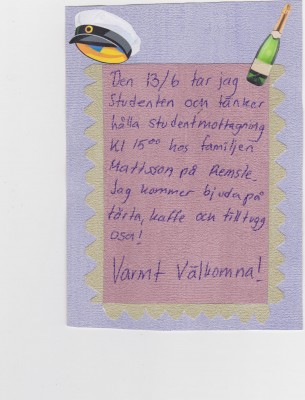 Den 13/6 tar jag
Studenten och tänker
hålla studentmottagning
Kl 15⁰⁰ hos familjen
Mattsson på Remsle.
Jag kommer bjuda på
tårta, kaffe och tilltugg
OSA!
Varmt Välkomna!